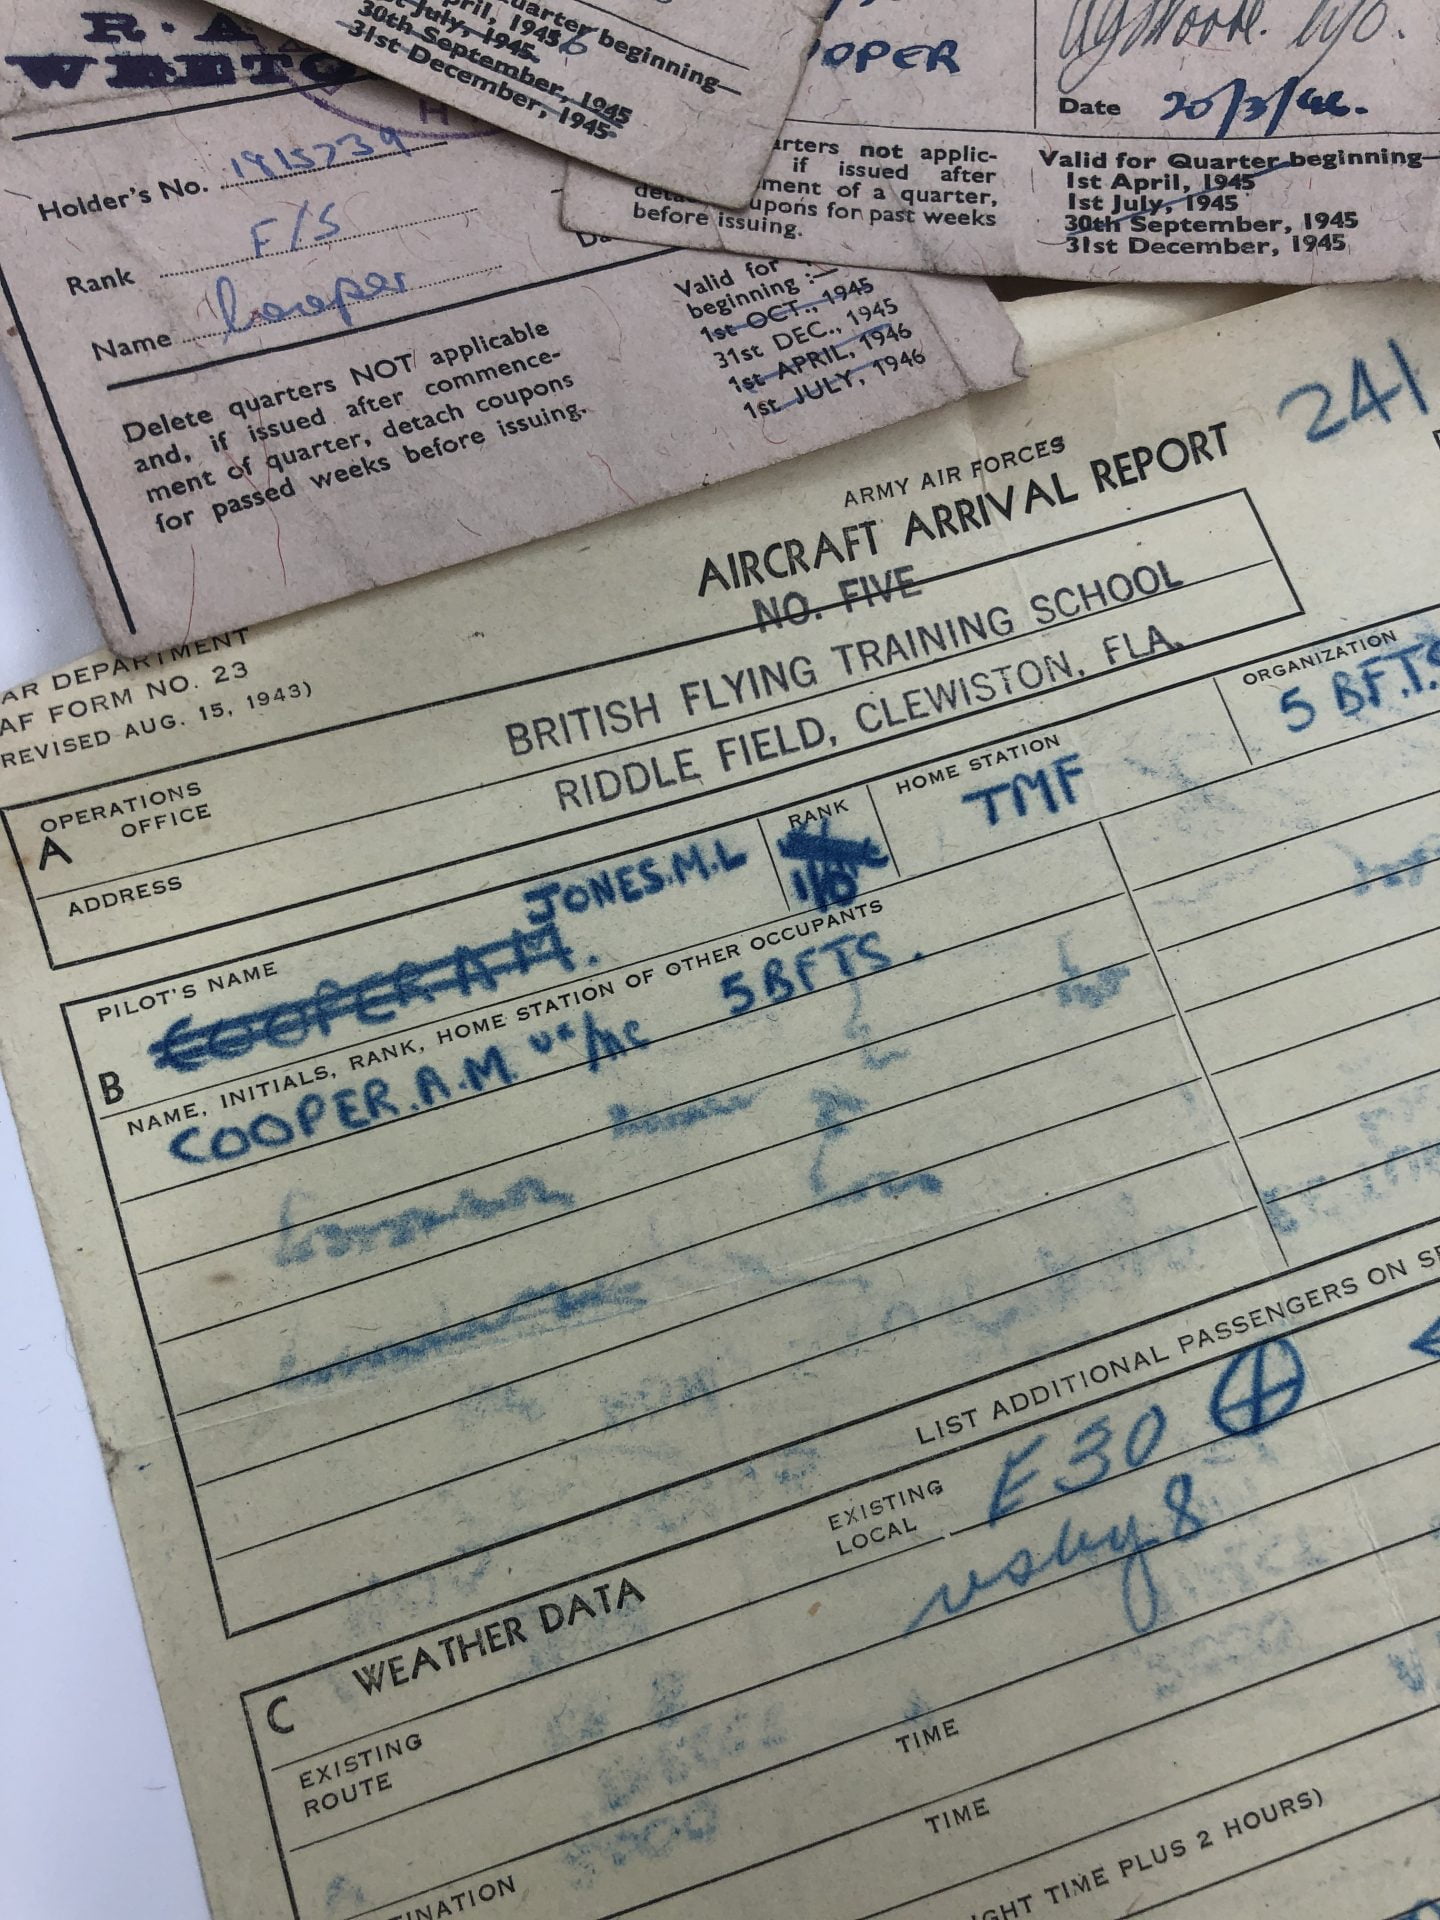 R.A
Holder's No. 1815739
Rank F/S
Name Cooper
Delete quarters NOT applicable
and, if issued after commence-
ment of quarter, detach coupons
for passed weeks before issuing.
Valid for
beginning :—
1st OCT., 1945
31st DEC., 1945
1st APRIL, 1946
1st JULY, 1946
uarter beginning—
pril, 1945 6
1st July, 1945
30th September, 1945
31st December, 1945
OOPER
Date 20/3/46.
arters not applic-
if issued after
ment of a quarter,
upons for past weeks
before issuing.
Valid for Quarter beginning—
1st April, 1945
1st July, 1945
30th September, 1945
31st December, 1945
241
ARMY AIR FORCES
AIRCRAFT ARRIVAL REPORT
NO. FIVE
BRITISH FLYING TRAINING SCHOOL
RIDDLE FIELD, CLEWISTON, FLA.
AR DEPARTMENT
AF FORM NO. 23
REVISED AUG. 15, 1943)
A
OPERATIONS
OFFICE
ADDRESS
B
PILOT'S NAME
COOPER A M. JONES. M. L
RANK
HOME STATION
TMF
ORGANIZATION
5 B.F.T.S
NAME, INITIALS, RANK, HOME STATION OF OTHER OCCUPANTS
COOPER. A. M. 5 BFTS.
LIST ADDITIONAL PASSENGERS ON
C WEATHER DATA
EXISTING
LOCAL
E30
vsby 8
EXISTING
ROUTE
TIME
TIME
TINATION
GHT TIME PLUS 2 HOURS)